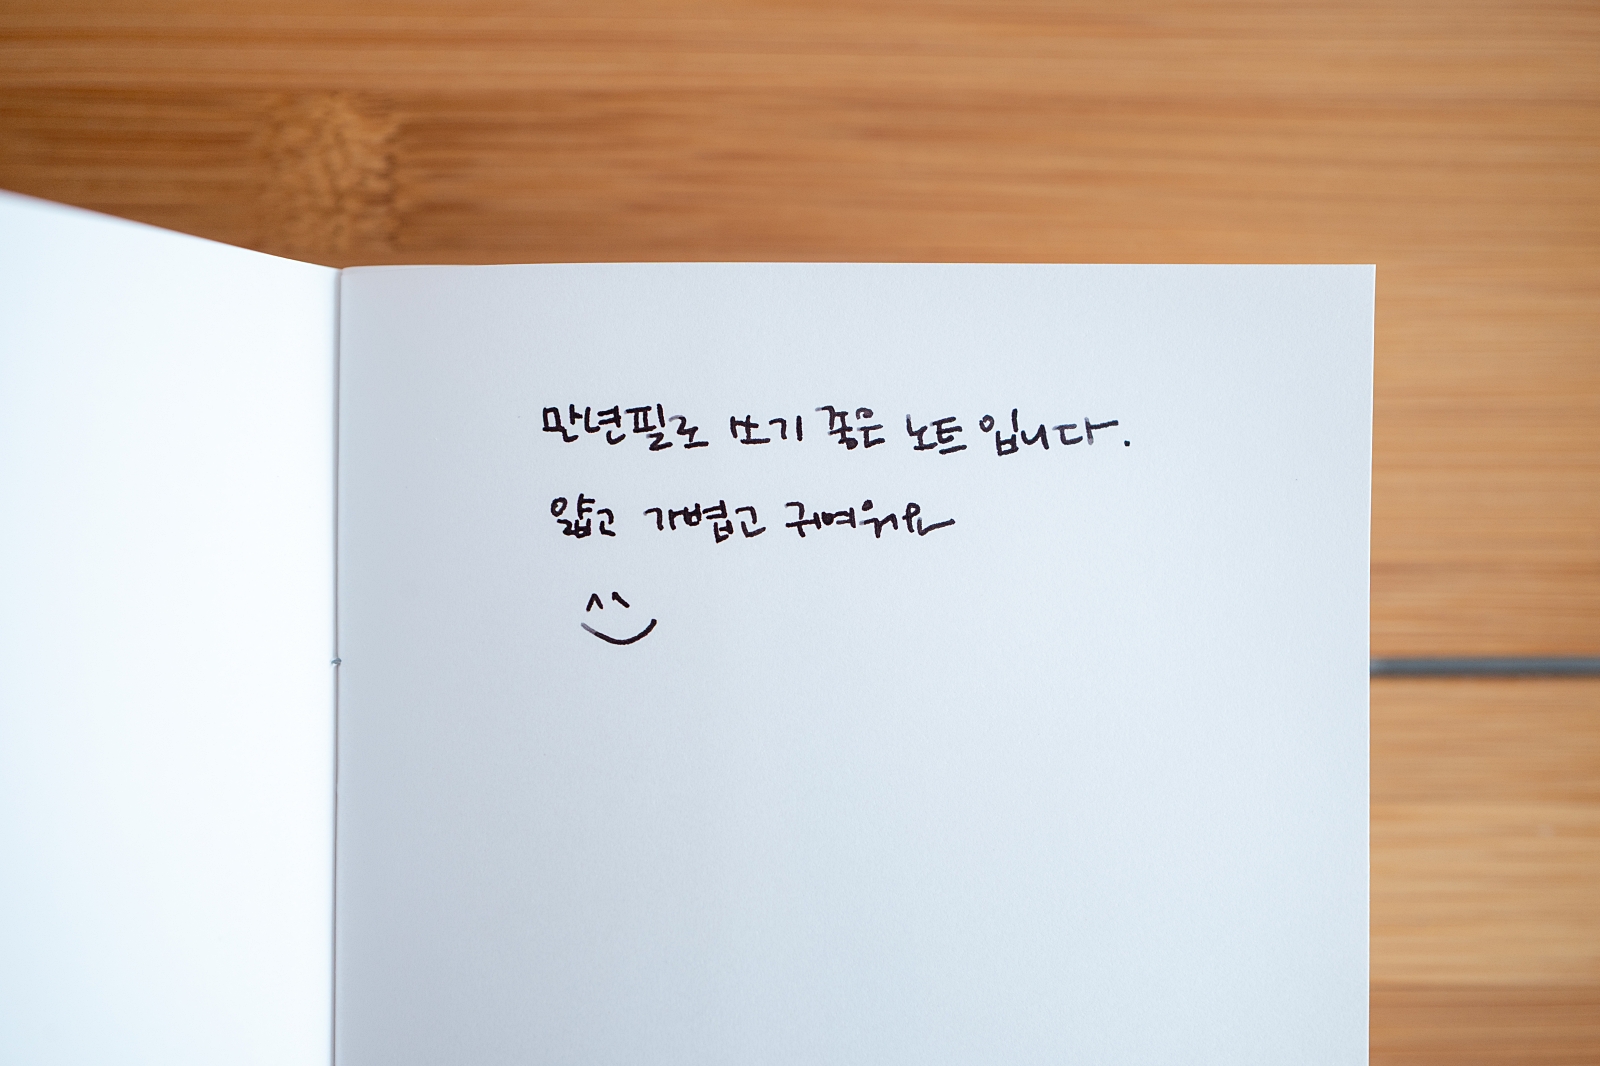 만년필로 쓰기 좋은 노트입니다.
얇고 가볍고 귀여워요
^^